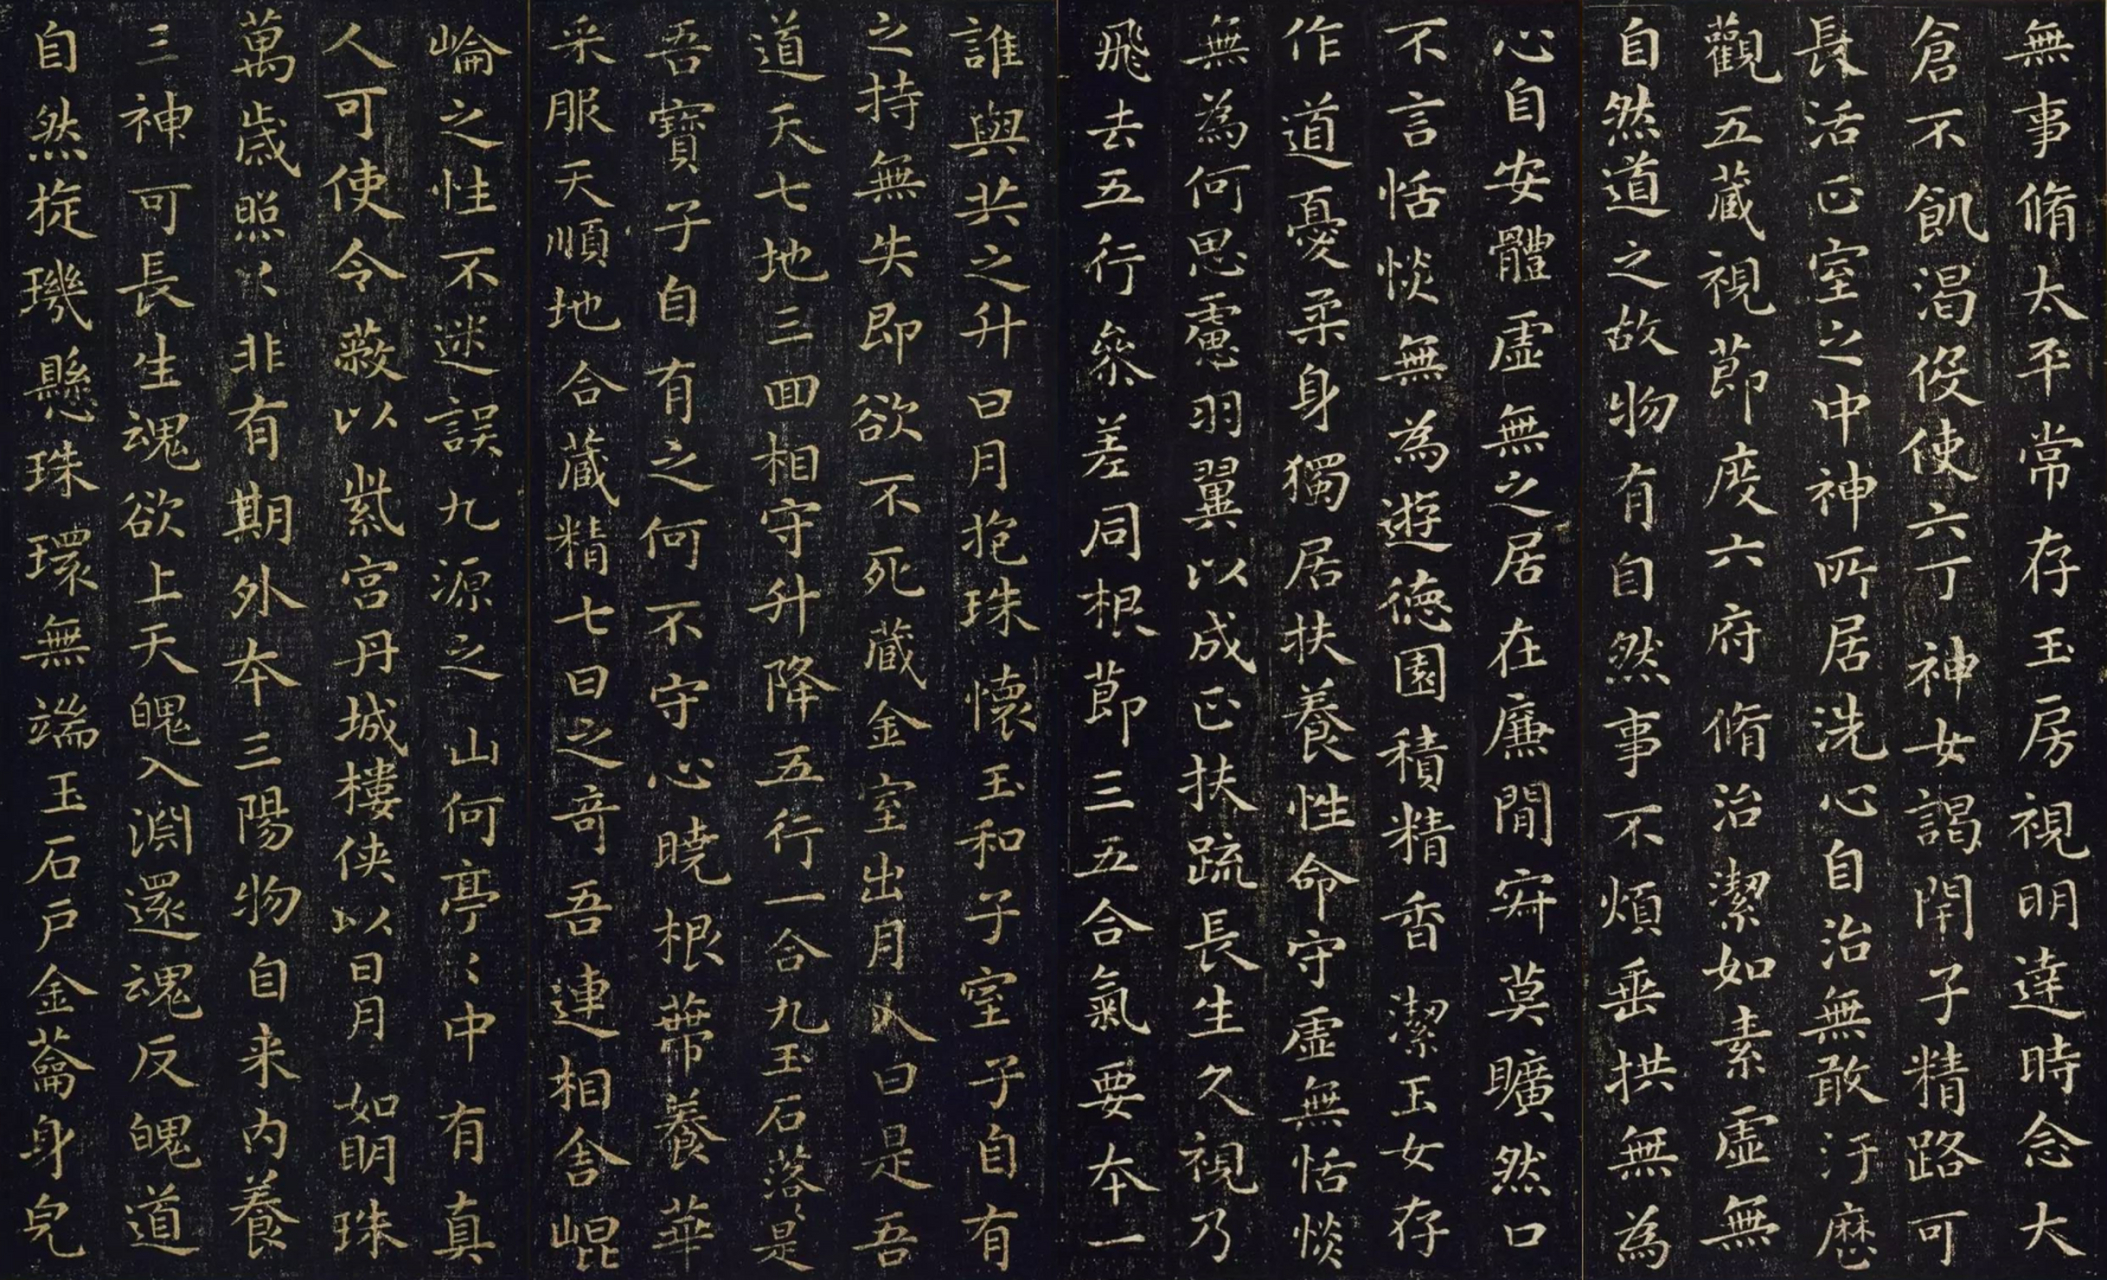 無事脩太平常存玉房視明達時念大
倉不飢渴役使六丁神女謁閇子精路可
長活正室之中神所居洗心自治無敢汙歷
觀五藏視節度六府脩治潔如素虛無
自然道之故物有自然事不煩垂拱無為
心自安體虛無之居在廉間㝕莫曠然口
不言恬惔無為遊德園積精香潔玉女存
作道憂柔身獨居扶養性命守虛無恬惔
無為何思慮羽翼以成正扶疏長生久視乃
飛去五行參差同根節三五合氣要本一
誰與共之升日月抱珠懷玉和子室子自有
之持無失即欲不死藏金室出月入日是吾
道天七地三回相守升降五行一合九玉石落落是
吾寶子自有之何不守心曉根蔕養華
采服天順地合藏精七日之奇吾連相舍崐
崙之性不迷誤九源之山何亭〻中有真
人可使令蔽以紫宮丹城樓俠以日月如明珠
萬歲照以非有期外本三陽物自来內養
三神可長生魂欲上天魄入淵還魂反魄道
自然旋璣懸珠環無端玉石戶金蘥身皃